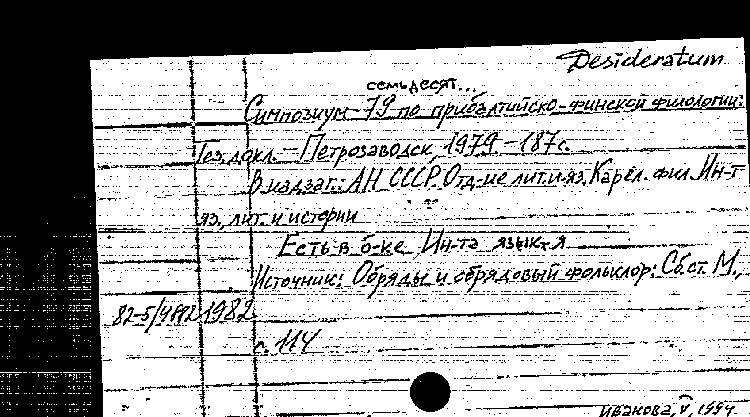 Desideratum
семьдесят...
Симпозиум-79 по прибалтийско-финской филологии:
Тез. докл. - Петрозаводск, 1979 - 187с.
В надзаг.: АН СССР. Отд-ие лит. и яз. Карел. фил. Ин-т
яз., лит. и истории
Есть в б-ке Ин-та языкз-я
Источник: Обряды и обрядовый фольклор: Сб. ст. М.,
82-5/ 1982
с. 114
Иванова, V,